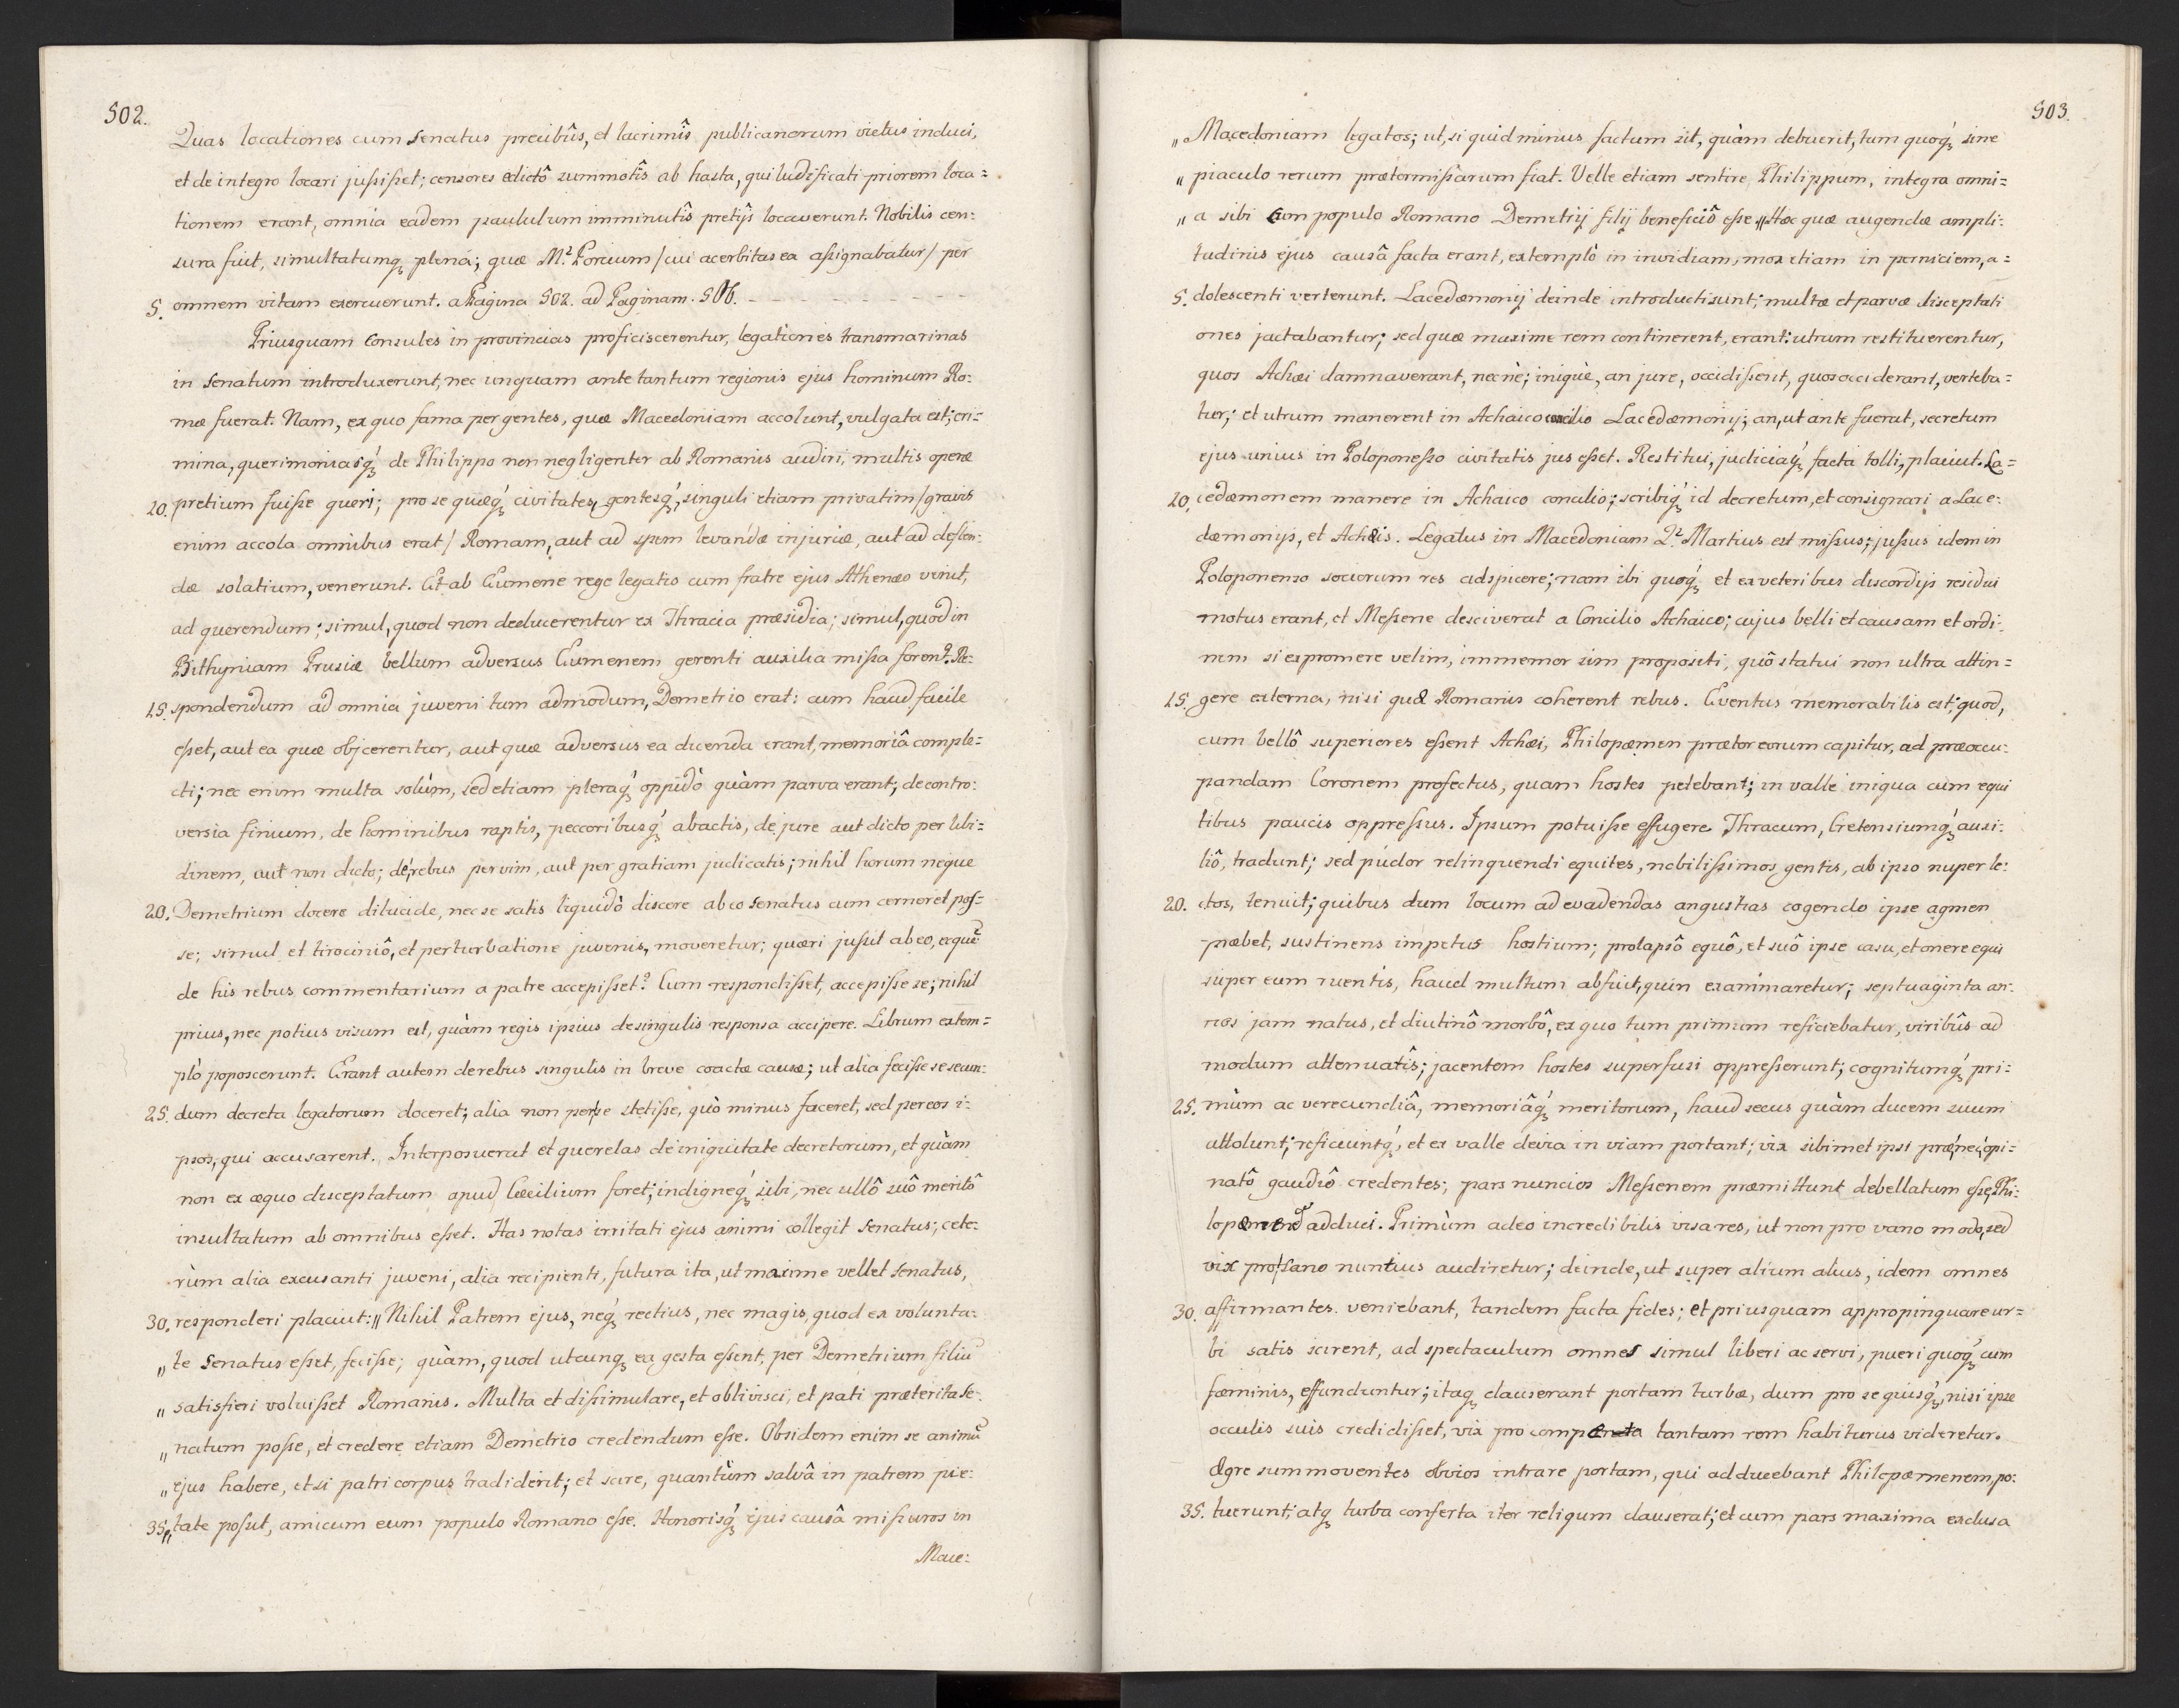 502.
Quas locationes cum senatus precibûs, et lacrimîs publicanorum victus induci,
et de integro locari jussisset; censores edictô summotîs ab hasta, qui ludificati priorem loca=
tionem erant, omnia eadem paululum imminutîs pretijs locaverunt. Nobilis cen:
sura fuit, simultatumq₃ plena; quæ M.² Porcium / cui acerbitas ea assignabatur / per
5. omnem vitam exercuerunt. a Pagina 502. ad Paginam. 506. - - - - - - - - -
Priusquam Consules in provincias proficiscerentur, legationes transmarinas
in senatum introduxerunt, nec unquam ante tantum regionis ejus hominum Ro:
mæ fuerat. Nam, ex quo fama per gentes, quæ Macedoniam accolunt, vulgata est; cri=
mina, querimoniasq₃́ de Philippo non negligenter ab Romanis audiri, multis operæ
10. pretium fuisse queri; pro se quæq₃́ civitates, gentesq₃́, singuli etiam privatim / gravis
enim accola omnibus erat / Romam, aut ad spem levandæ injuriæ, aut ad deflen:
dæ solatium, venerunt. Et ab Eumene rege legatio cum fratre ejus Athenæo venit,
ad querendum; simul, quod non deducerentur ex Thracia præsidia; simul, quod in
Bithyniam Prusiæ bellum adversus Eumenem gerenti auxilia missa forent. Re:
15. spondendum ad omnia juveni tum admodum, Demetrio erat: cum haud facile
esset, aut ea quæ objcerentur, aut quæ adversus ea dicenda erant, memoriâ comple=
cti; nec enim multa solùm, sed etiam pleraq₃́ oppidò quàm parva erant; de contro:
versia finium, de hominibus raptis, peccoribusq₃́ abactis, de jure aut dicto per libi=
dinem, aut non dicto; de rebus per vim, aut per gratiam judicatis; nihil horum neque
20. Demetrium docere dilucide, nec se satis liquidò discere ab eo senatus cum cerneret pos=
se; simul et tirociniô, et perturbatione juvenis, moveretur; quæri jussit ab eo, ecquē
de his rebus commentarium a patre accepisset? Cum respondisset, accepisse se; nihil
prius, nec potius visum est, quàm regis ipsius de singulis responsa accipere. Librum extem=
plò poposcerunt. Erant autem de rebus singulis in breve coactæ causæ; ut alia fecisse se secun:
25. dum decreta legatorum doceret; alia non per se stetisse, quò minus faceret, sed per eos i=
psos, qui accusarent. Interposuerat et querelas de iniquitate decretorum, et quàm
non ex æquo disceptatum apud Cæcilium foret; indigneq₃́ sibi, nec ullô suô meritô
insultatum ab omnibus esset. Has notas irritati ejus animi collegit Senatus; cete:
rùm alia excusanti juveni, alia recipienti, futura ita, ut maxime vellet senatus,
30. responderi placuit: „ Nihil Patrem ejus, neq₃́ rectius, nec magis, quod ex volunta:
„ te senatus esset, fecisse; quàm, quod utcunq₃ ea gesta essent, per Demetrium filiū
„ satisfieri voluisset Romanis. Multa et dissimulare, et oblivisci, et pati præterita Se-
„ natum posse, et credere etiam Demetrio credendum esse. Obsidem enim se animū
„ ejus habere, etsi patri corpus tradiderit; et scire, quantùm salvâ in patrem pie:
35. „ tate possit, amicum eum populo Romano esse. Honorisq₃́ ejus causâ missuros in
Mace:
503.
„ Macedoniam legatos; ut, si quid minus factum sit, quàm debuerit, tum quoq₃́ sine
„ piaculo rerum prætermissarum fiat. Velle etiam sentire Philippum, integra omni=
„ a sibi cum populo Romano Demetrij filij beneficiô esse „ Hæc quæ augendæ ampli:
tudinis ejus causâ facta erant, extemplò in invidiam, mox etiam in perniciem, a=
5. dolescenti verterunt. Lacedæmonij deinde introducti sunt; multæ et parvæ disceptati
ones jactabantur; sed quæ maxime rem continerent, erant: utrum restituerentur,
quos Achæi damnaverant, necnè; iniquè, an jure, occidissent, quos occiderant, verteba=
tur; et utrum manerent in Achaico concilio Lacedæmonij; an, ut ante fuerat, secretum
ejus unius in Poloponesso civitatis jus esset. Restitui, judiciaq₃́ facta tolli, placuit. La=
10. cedæmonem manere in Achaico concilio; scribiq₃́ id decretum, et consignari a Lace:
dæmonijs, et Achæis. Legatus in Macedoniam Q.² Martius est missus; jussus idem in
Poloponenso sociorum res adspicere; nam ibi quoq₃́ et ex veteribus discordijs residui
motus erant, et Messene desciverat a Concilio Achaico; cujus belli et causam et ordi:
nem si expromere velim, immemor sim propositi, quô statui non ultra attin=
15. gere externa, nisi quæ Romanis coherent rebus. Eventus memorabilis est; quod,
cum bellô superiores essent Achæi, Philopæmen prætor eorum capitur, ad præoccu:
pandam Coronem profectus, quam hostes petebant; in valle iniqua cum equi
tibus paucis oppressus. Ipsum potuisse effugere Thracum, Cretensiumq₃́ auxi:
liô, tradunt; sed pudor relinquendi equites, nobilissimos gentis, ab ipso nuper le:
20. ctos, tenuit; quibus dum locum ad evadendas angustias cogendo ipse agmen
præbet, sustinens impetus hostium; prolapsô equô, et suô ipse casu, et onere equi
super eum ruentis, haud multum absuit, quin exanimaretur; septuaginta an:
nos jam natus, et diutinô morbô, ex quo tum primum reficiebatur, viribûs ad
modum attenuatîs; jacentem hostes superfusi oppresserunt; cognitumq₃́ pri=
25. mùm ac verecundiâ, memoriâq₃́ meritorum, haud secus quàm ducem suum
attolunt; reficiuntq₃́, et ex valle devia in viam portant; vix sibimet ipsi præ nec opi=
natô gaudiô credentes; pars nuncios Messenem præmittunt debellatum esse, Phi:
lopæmenē adduci. Primùm adeo incredibilis visa res, ut non pro vano modo, sed
vix pro sano nuntius audiretur; deinde, ut super alium alius, idem omnes
30. affirmantes veniebant, tandem facta fides; et priusquam appropinquare ur=
bi satis scirent, ad spectaculum omnes simul liberi ac servi, pueri quoq₃́ cum
fæminis, effunduntur; itaq₃ clauserant portam turbæ, dum pro se quisq₃́, nisi ipse
occulis suis credidisset, vix pro tantam rem habiturus videretur.
Ægre summoventes obvios intrare portam, qui adducebant Philopæmenem, po:
35. tuerunt; atq₃ turba conferta iter reliqum clauserat; et cum pars maxima exclusa